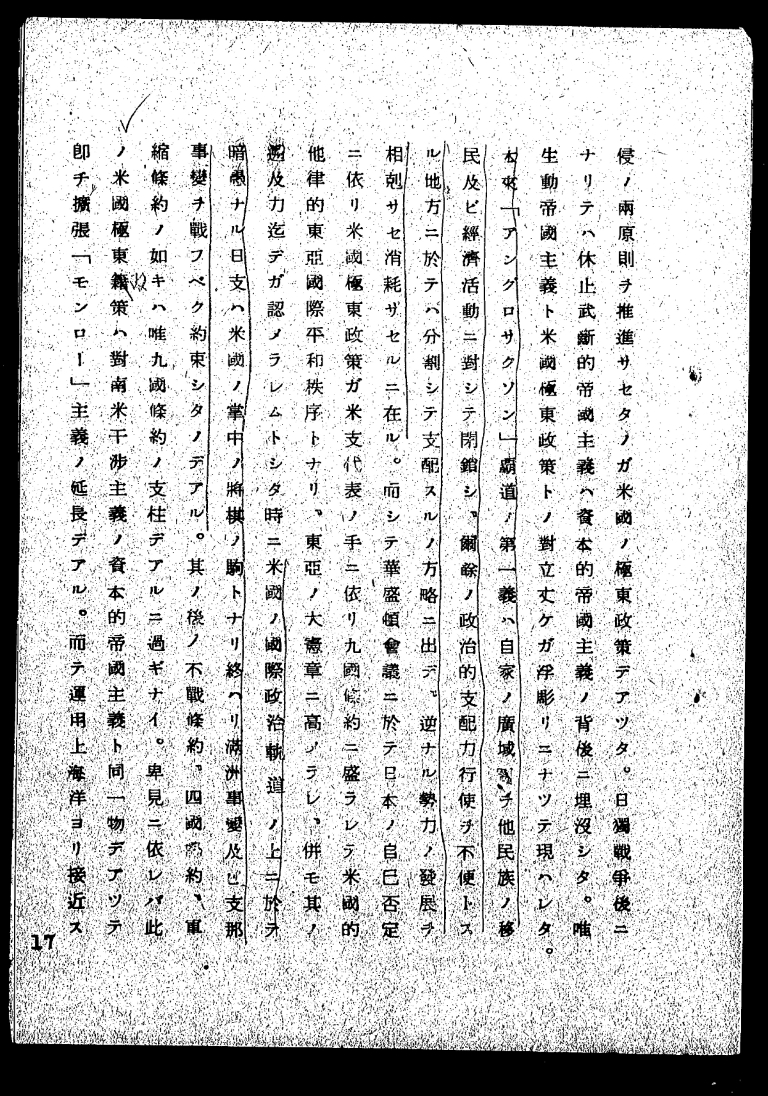 侵ノ兩原則ヲ推進サセタノガ米國ノ極東政策デアツタ。日獨戰爭後ニ
ナリテハ休止武斷的帝國主義ハ資本的帝國主義ノ背後ニ埋沒シタ。唯
生動帝國主義ト米國極東政策トノ對立丈ケガ浮彫リニナツテ現ハレタ。
本來「アングロサクソン」覇道ノ第一義ハ自家ノ廣域ヲ他民族ノ移
民及ビ經濟活動ニ對シテ閉鎖シ。爾餘ノ政治的支配力行使ヲ不便トス
ル地方ニ於テハ分割シテ支配スルノ方略ニ出デ。逆ナル勢力ノ發展ヲ
相剋サセ消耗サセルニ在ル。而シテ華盛頓會議ニ於テ日本ノ自己否定
ニ依リ米國極東政策ガ米支代表ノ手ニ依リ九國條約ニ盛ラレテ米國的
他律的東亞國際平和秩序トナリ、東亞ノ大憲章ニ高メラレ、併モ其ノ
遡及力迄デガ認メラレムトシタ時ニ米國ノ國際政治軌道ノ上ニ於テ
暗愚ナル日支ハ米國ノ掌中ノ將棋ノ駒トナリ終ハリ滿洲事變及ビ支那
事變ヲ戰フベク約束シタノデアル。其ノ後ノ不戰條約、四國條約、軍
縮條約ノ如キハ唯九國條約ノ支柱デアルニ過ギナイ。卑見ニ依レバ此
ノ米國極東策ハ對南米干渉主義ノ資本的帝國主義ト同一物デアツテ
卽チ擴張「モンロー」主義ノ延長デアル。而テ運用上海洋ヨリ接近ス
17